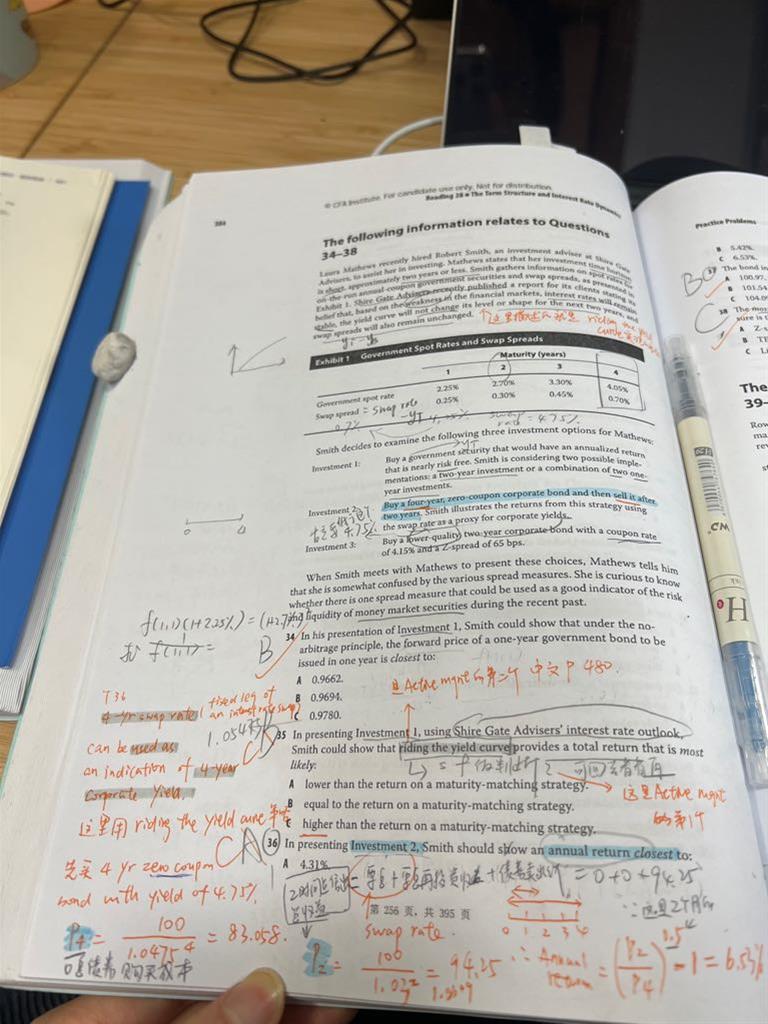 © CFA Institute. For candidate use only. Not for distribution.
Reading 28 ■ The Term Structure and Interest Rate Dynamics
The following information relates to Questions
34–38
Laura Mathews recently hired Robert Smith, an investment adviser at Shire Gate
Advisers, to assist her in investing. Mathews states that her investment time horizon
is short, approximately two years or less. Smith gathers information on spot rates for
on-the-run annual-coupon government securities and swap spreads, as presented in
Exhibit 1. Shire Gate Advisers recently published a report for its clients stating its
belief that, based on the weakness in the financial markets, interest rates will remain
stable, the yield curve will not change its level or shape for the next two years, and
swap spreads will also remain unchanged.
Exhibit 1 Government Spot Rates and Swap Spreads
Maturity (years)
1 2 3 4
Government spot rate 2.25% 2.70% 3.30% 4.05%
Swap spread 0.25% 0.30% 0.45% 0.70%
= swap rate
swap rate = 4.75%
Smith decides to examine the following three investment options for Mathews:
Investment 1: Buy a government security that would have an annualized return
that is nearly risk free. Smith is considering two possible imple-
mentations: a two-year investment or a combination of two one-
year investments.
Investment 2: Buy a four-year, zero-coupon corporate bond and then sell it after
two years. Smith illustrates the returns from this strategy using
the swap rate as a proxy for corporate yields.
4.75%
Investment 3: Buy a lower-quality, two-year corporate bond with a coupon rate
of 4.15% and a Z-spread of 65 bps.
When Smith meets with Mathews to present these choices, Mathews tells him
that she is somewhat confused by the various spread measures. She is curious to know
whether there is one spread measure that could be used as a good indicator of the risk
and liquidity of money market securities during the recent past.
B
34 In his presentation of Investment 1, Smith could show that under the no-
arbitrage principle, the forward price of a one-year government bond to be
issued in one year is closest to:
A 0.9662.
B 0.9694.
C 0.9780.
35 In presenting Investment 1, using Shire Gate Advisers' interest rate outlook,
Smith could show that riding the yield curve provides a total return that is most
likely:
A lower than the return on a maturity-matching strategy.
B equal to the return on a maturity-matching strategy.
C higher than the return on a maturity-matching strategy.
36 In presenting Investment 2, Smith should show an annual return closest to:
A 4.31%.
第 256 页，共 395 页
T36
4-yr swap rate (fixed leg of
an interest rate swap)
can be used as
an indication of 4-year
corporate yield.
这里用 riding the yield curve 策略
先买 4 yr zero coupon
bond with yield of 4.75%
P4 = 100 / 1.0475^4 = 83.058.
swap rate.
= 0 + 0 + 94.25
0 1 2 3 4
= 94.25
∴ Annual return = (P2/P4)^0.5 - 1 = 6.53%
Practice Problems
B 5.42%.
C 6.53%.
37 The bond in
A 100.97.
B 101.54
C 104.0
38 The mos
A Z-s
B TE
C Li
The
39–